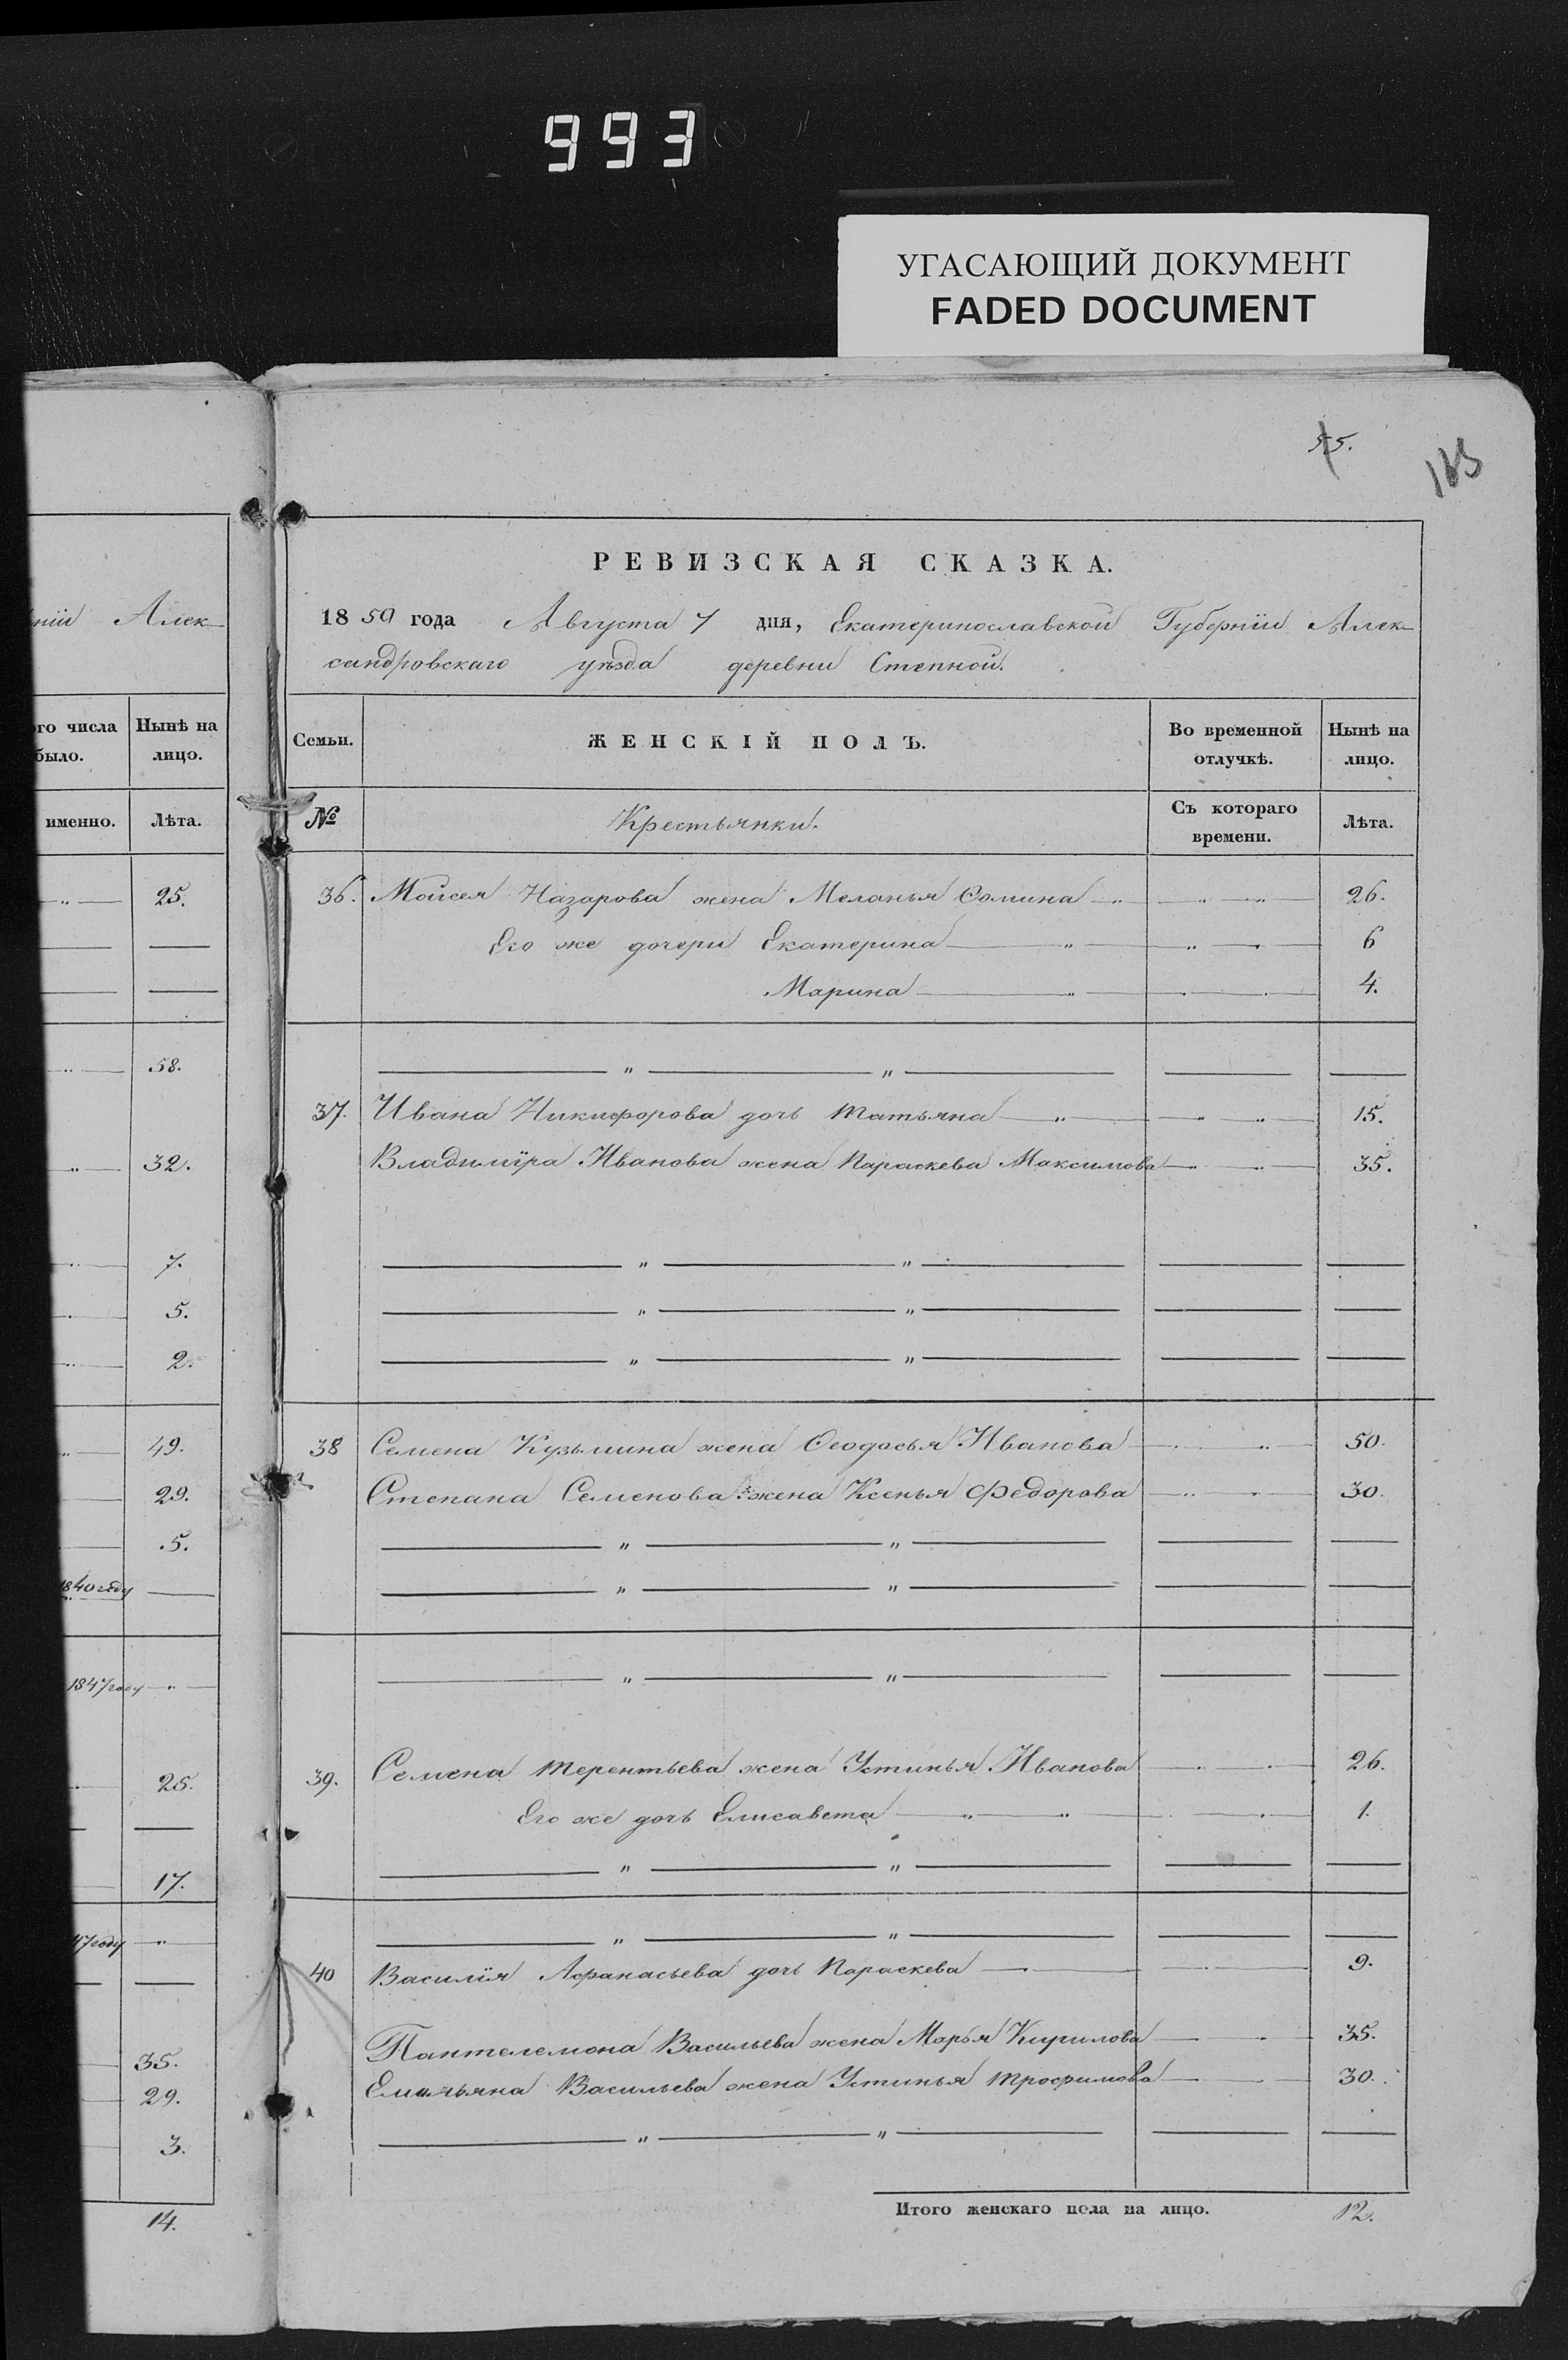 993
УГАСАЮЩИЙ ДОКУМЕНТ
FADED DOCUMENT
55.
нiи Алек
ого числа было.
Нынѣ на лицо.
именно.
Лѣта.
25.
58.
32.
7.
5.
2.
49.
29.
5.
1840 году
1847 году
25.
17.
47 году
35.
29.
3.
14.
РЕВИЗСКАЯ СКАЗКА.
1850 года Августа 7 дня, Екатеринославской Губернiи Алек
сандровскаго уѣзда деревни Степной.
Семьи.
ЖЕНСКІЙ ПОЛЪ.
Во временной отлучкѣ.
Нынѣ на лицо.
№
Крестьянки.
Съ котораго времени.
Лѣта.
36. Мойсея Назарова жена Меланья Ѳомина 26.
Его же дочери Екатерина 6
Марина 4.
37. Ивана Никифорова дочь Татьяна 15.
Владимiра Иванова жена Параскева Максимова 35.
38 Семена Кузьмина жена Ѳеодосья Иванова 50.
Степана Семенова жена Ксенья Федорова 30.
39. Семена Терентьева жена Устинья Иванова 26.
Его же дочь Елисавета 1.
40 Василiя Афанасьева дочь Параскева 9.
Пантелемона Васильева жена Марья Кирилова 35.
Емильяна Васильева жена Устинья Трофимова 30.
Итого женскаго пола на лицо. 12.